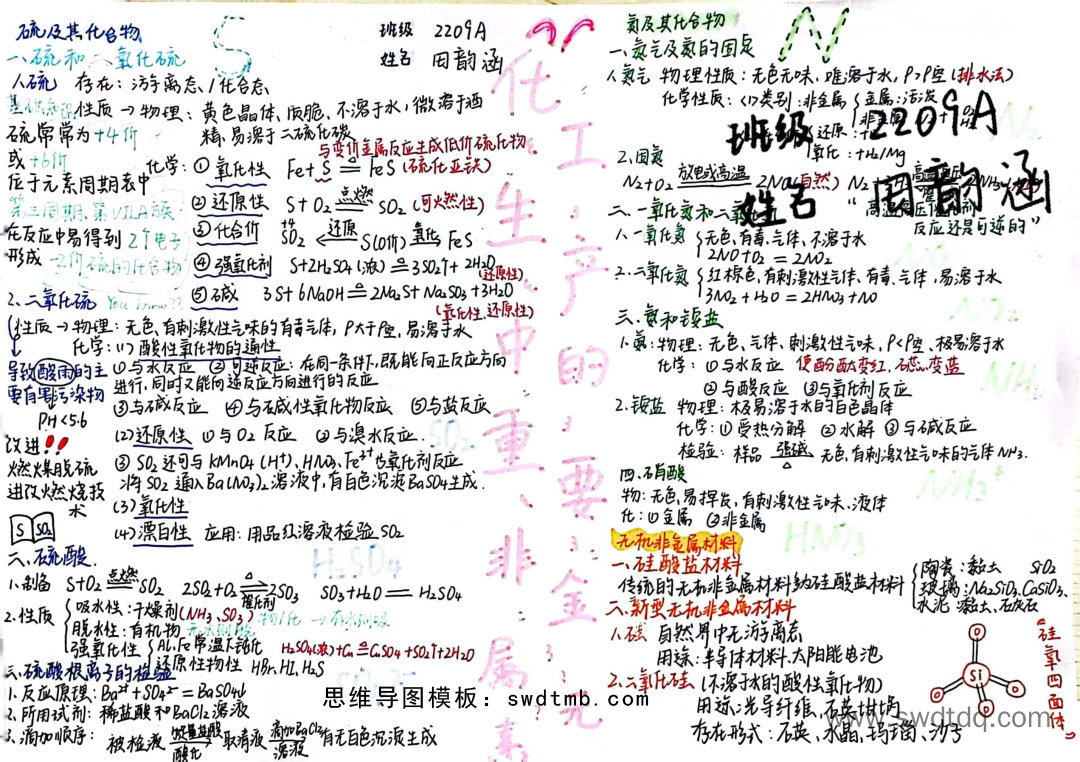 硫及其化合物
S
班级 2209A
姓名 田韵涵
一、硫和二氧化硫
1.硫 存在：游离态、化合态
性质→物理：黄色晶体，质脆，不溶于水，微溶于酒精，易溶于二硫化碳
硫常常为+4价
或+6价
位于元素周期表中
第三周期，第VIA族
在反应中易得到2个电子
形成-2价硫的化合物
与变价金属反应生成低价硫化物
化学：①氧化性 Fe+S≜FeS(硫化亚铁)
②还原性 S+O2 点燃 SO2 (可燃性)
③化合价 +4 SO2 还原 S(0价) 氧化 FeS
④强氧化剂 S+2H2SO4(浓)≜3SO2↑+2H2O
(还原性)
⑤碱 3S+6NaOH≜2Na2S+Na2SO3+3H2O
(氧化性、还原性)
2.二氧化硫 You know??
性质→物理：无色，有刺激性气味的有毒气体，ρ大于空，易溶于水
化学：(1)酸性氧化物的通性
导致酸雨的主要有害污染物
①与水反应 ②可逆反应：在同一条件下，既能向正反应方向
进行，同时又能向逆反应方向进行的反应
PH<5.6
③与碱反应 ④与碱性氧化物反应 ⑤与盐反应
改进!!
燃煤脱硫
进改燃烧技术
S SO2
(2)还原性 ①与O2反应 ②与溴水反应
SO2
③SO2还可与KMnO4(H+)、HNO3、Fe3+也氧化剂反应
将SO2通入Ba(NO3)2溶液中，有白色沉淀BaSO4生成.
(3)氧化性
(4)漂白性 应用：用品红溶液检验SO2
二、硫酸.
H2SO4
1.制备 S+O2 点燃 SO2 2SO2+O2 催化剂 △ 2SO3 SO3+H2O = H2SO4
2.性质
吸水性：干燥剂(NH3、SO3)
脱水性：有机物
强氧化性 Al、Fe常温下钝化 H2SO4(浓)+Cu≜CuSO4+SO2↑+2H2O
还原性物性 HBr、HI、H2S
三、硫酸根离子的检验
1.反应原理：Ba2++SO42-=BaSO4↓
2.所用试剂：稀盐酸和BaCl2溶液
3.滴加顺序：被检液 足量盐酸 酸化 取清液 滴加BaCl2 溶液 有无白色沉淀生成
化工生产中的重要非金属元素
氮及其化合物
N
一、氮气及氮的固定
1.氮气 物理性质：无色无味，难溶于水，ρ>ρ空(排水法)
化学性质：(1)类别：非金属 金属：活泼
非金属
还原
氧化：+H2/Mg
N2
班级 2209A
姓名 田韵涵
2.固氮
N2+O2 放电或高温 2NO(自然)
反应还是可逆的"
二、一氧化氮和二氧化氮
1.一氧化氮
无色，有毒，气体，不溶于水
2NO+O2=2NO2
NO
2.二氧化氮
红棕色，有刺激性气体，有毒，气体，易溶于水
3NO2+H2O=2HNO3+NO
NO2
三、氨和铵盐
1.氨：物理：无色，气体，刺激性气味，ρ<ρ空，极易溶于水
化学：①与水反应 使酚酞变红，石蕊变蓝
NH3
②与酸反应 ③与氧化剂反应
2.铵盐 物理：极易溶于水的白色晶体
化学：①受热分解 ②水解 ③与碱反应
检验：样品 强碱 △ 无色，有刺激性气味的气体NH3.
四、硝酸
物：无色，易挥发，有刺激性气味，液体
化：①金属 ②非金属
HNO3
无机非金属材料
一、硅酸盐材料
传统的无机非金属材料多为硅酸盐材料
陶瓷：黏土 SiO2
玻璃：Na2SiO3、CaSiO3、
水泥 黏土、石灰石
二、新型无机非金属材料
1.硅 自然界中无游离态
用途：半导体材料，太阳能电池
2.二氧化硅(不溶于水的酸性氧化物)
用途：光导纤维、石英坩埚
存在形式：石英、水晶、玛瑙、沙子
Si O O O O
"硅氧四面体"
思维导图模板：swdtmb.com
www.swdtdq.com